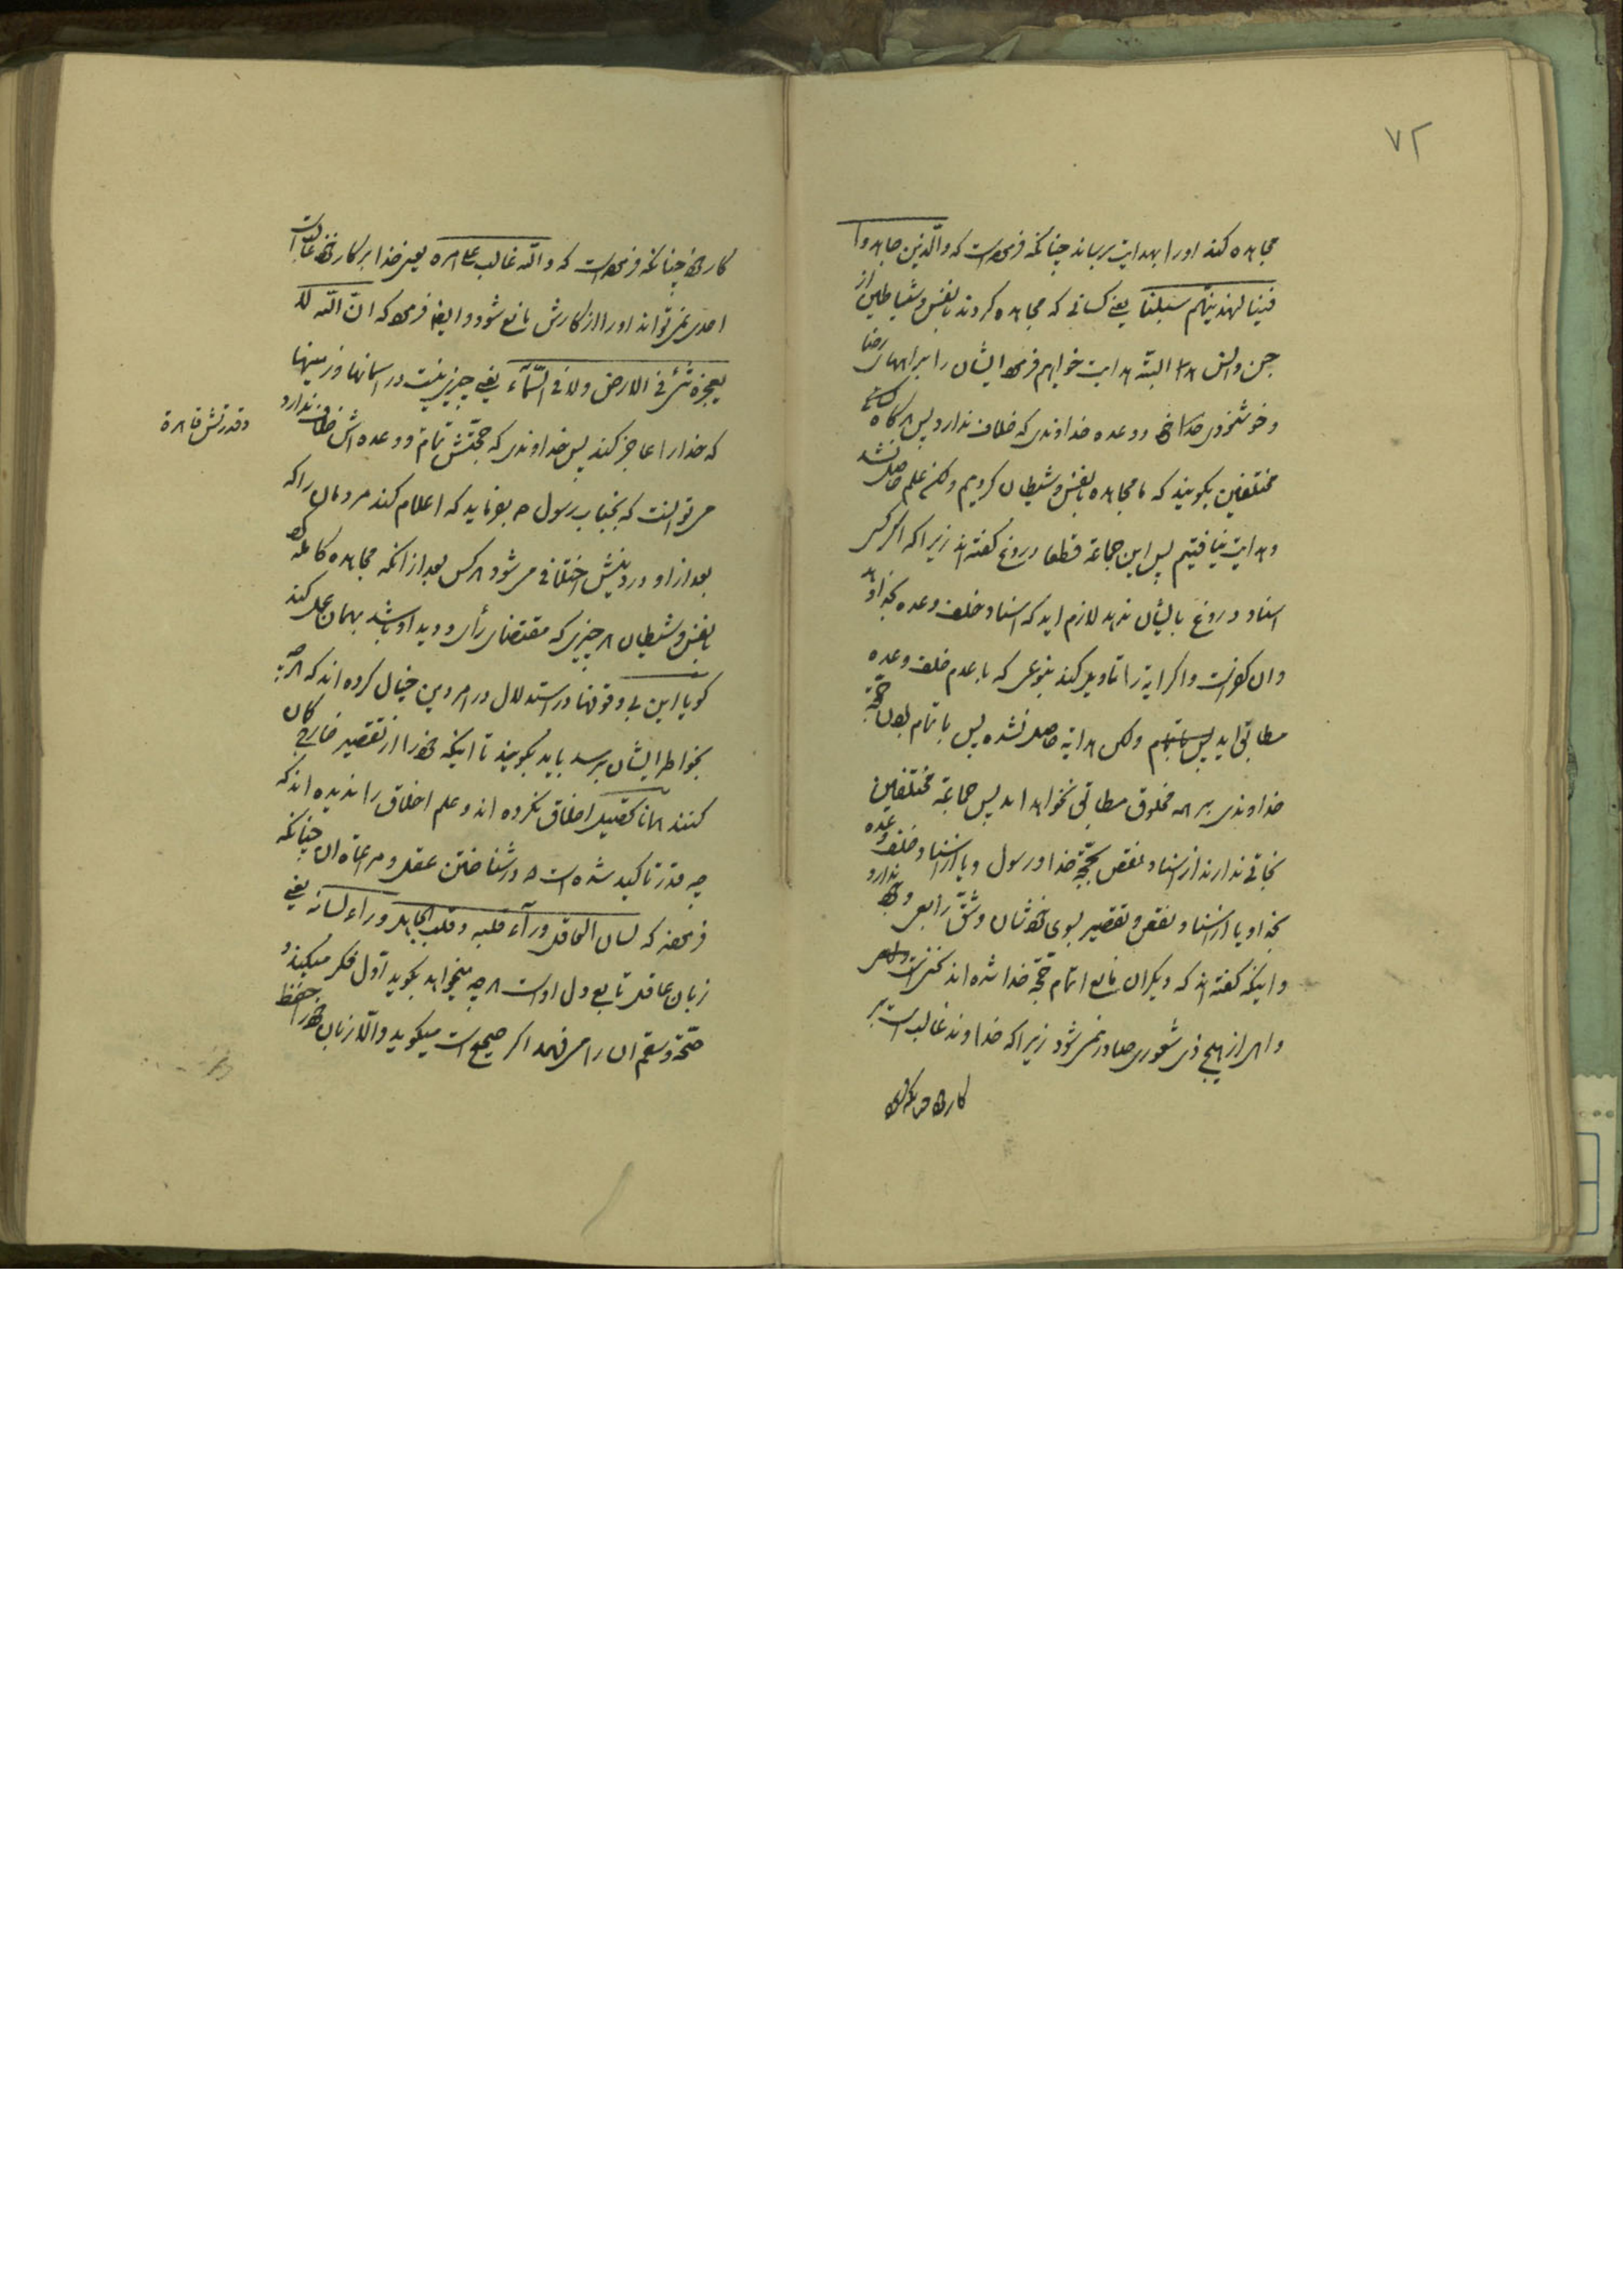 ۷۲
مجاهده کند اورا بهدایت برساند چنانکه فرموده است که والّذین جاهدوا
فینا لنهدینهم سبلنا یعنی کسانی که مجاهده کردند بانفس و شیاطین از
جن وانس ما البته هدایت خواهم فرمود ایشان را براههای رضا
وخوشنودی خود و وعده خداوندی که خلاف ندارد پس هرگاه
مختلفین بگویند که ما مجاهده بانفس و شیطان کردیم ولکن علم حاصل نشد
وهدایت نیافتیم پس این جماعة قطعا دروغ گفته اند زیرا که اگر کسی
اسناد دروغ بایشان ندهد لازم اید که اسناد خلف وعده بخدا دهد
وان کفر است واگر ایه را تاویل کند بنوعی که با عدم خلف وعده
مطابق اید ولکن هدایة حاصل نشده پس با تمام بودن حجّة
خداوندی بر همه مخلوق مطابق نخواهد امد پس جماعة مختلفین
نجاتی ندارند از اسناد نقص بحجّة خدا ورسول ویا از اسناد خلف وعده
بخدا ویا از اسناد نقص وتقصیر بسوی خودشان وشقّ رابعی وجود ندارد
واینکه گفته اند که دیگران مانع اتمام حجّة خدا شده اند
از هیچ ذی شعوری صادر نمی شود زیرا که خداوند غالب است بر
کار خود
کار خود چنانکه فرموده است که والله غالب علی امره یعنی خدا بر کار خود غالب است
احدی نمی تواند اورا از کارش مانع شود وایضا فرموده که انّ الله لا
یعجزه شئ فی الارض ولا فی السّمآء یعنی چیزی نیست در اسمانها وزمینها
که خدارا عاجز کند پس خداوندی که حجّتش تمام ووعده اش خلاف ندارد
وقدرتش قاهرة
می توانست که بجناب رسول ص بفرماید که اعلام کند مردمان را که
بعد از او در دینش اختلافی می شود هر کس بعد از انکه مجاهده کامله
بانفس و شیطان هر چیزی که مقتضای رأی و دید او باشد بهمان عمل کند
گویا این بی وقوفها در استدلال در امر دین خیال کرده اند که هر چه
بخواطر ایشان برسد باید بگویند تا اینکه خودرا از تقصیر خارج
کنند همانا تحصیل اخلاق نکرده اند وعلم اخلاق را ندیده اند که
چه قدر تاکید شده است در شناختن عقل ومراعاة ان چنانکه
فرموده که لسان العاقل ورآء قلبه وقلب الجاهل ورآء لسانه یعنی
زبان عاقل تابع دل اوست هر چه میخواهد بگوید اوّل فکر میکند و
صحّة وسقم ان را می فهمد اگر صحیح است میگوید والّا زبان خودرا حفظ